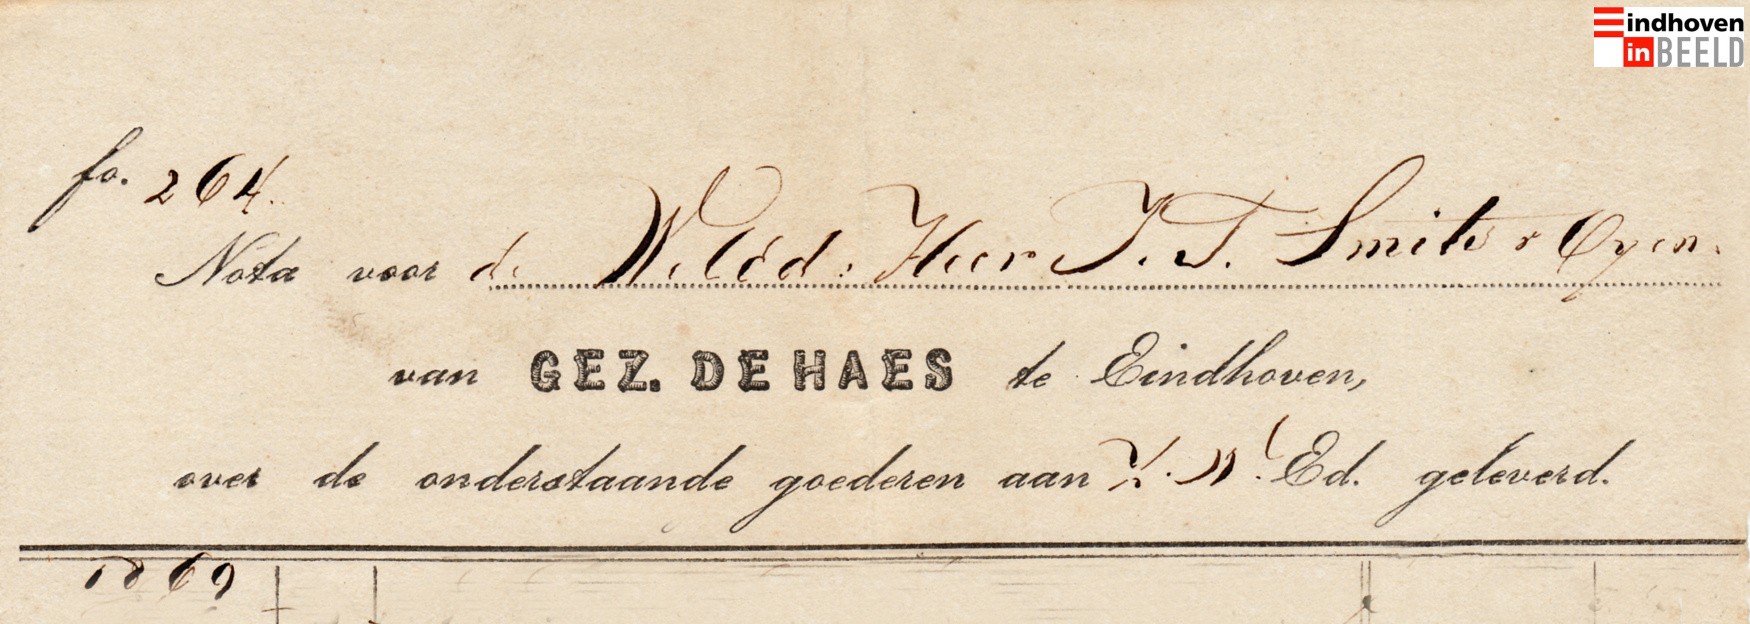 Eindhoven
in BEELD
fo. 264.
Nota voor de Weled: Heer J. T. Smits v Oyen.
van GEZ. DE HAES te Eindhoven,
over de onderstaande goederen aan Z. W. Ed. geleverd.
1869